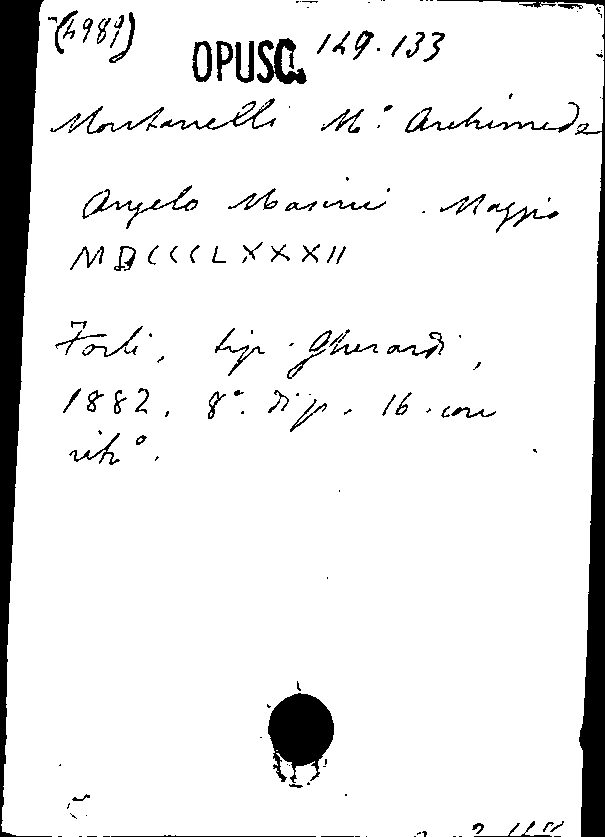 (4989)
OPUSC. 149.133
Montanelli M.º Archimede
Angelo Masini. Maggio
MDCCCLXXXII
Forlì, tip. Gherardi,
1882. 8º. di p. 16. con
ritrº.